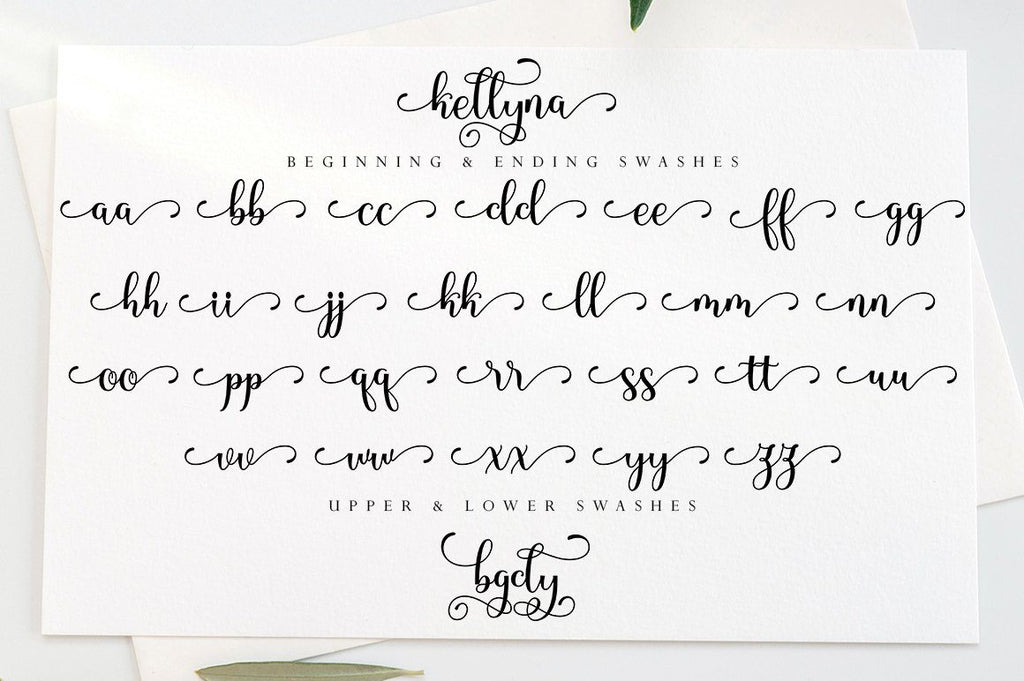 kellyna
BEGINNING & ENDING SWASHES
aa bb cc dd ee ff gg
hh ii jj kk ll mm nn
oo pp qq rr ss tt uu
vv ww xx yy zz
UPPER & LOWER SWASHES
bgdy